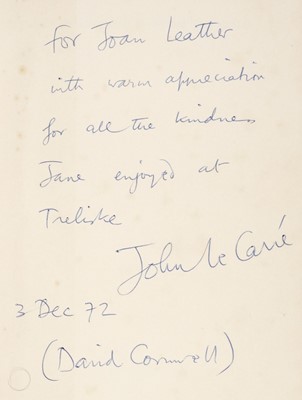 For Joan Leather
with warm appreciation
for all the kindness
Jane enjoyed at
Treliske
John le Carré
3 Dec 72
(David Cornwell)